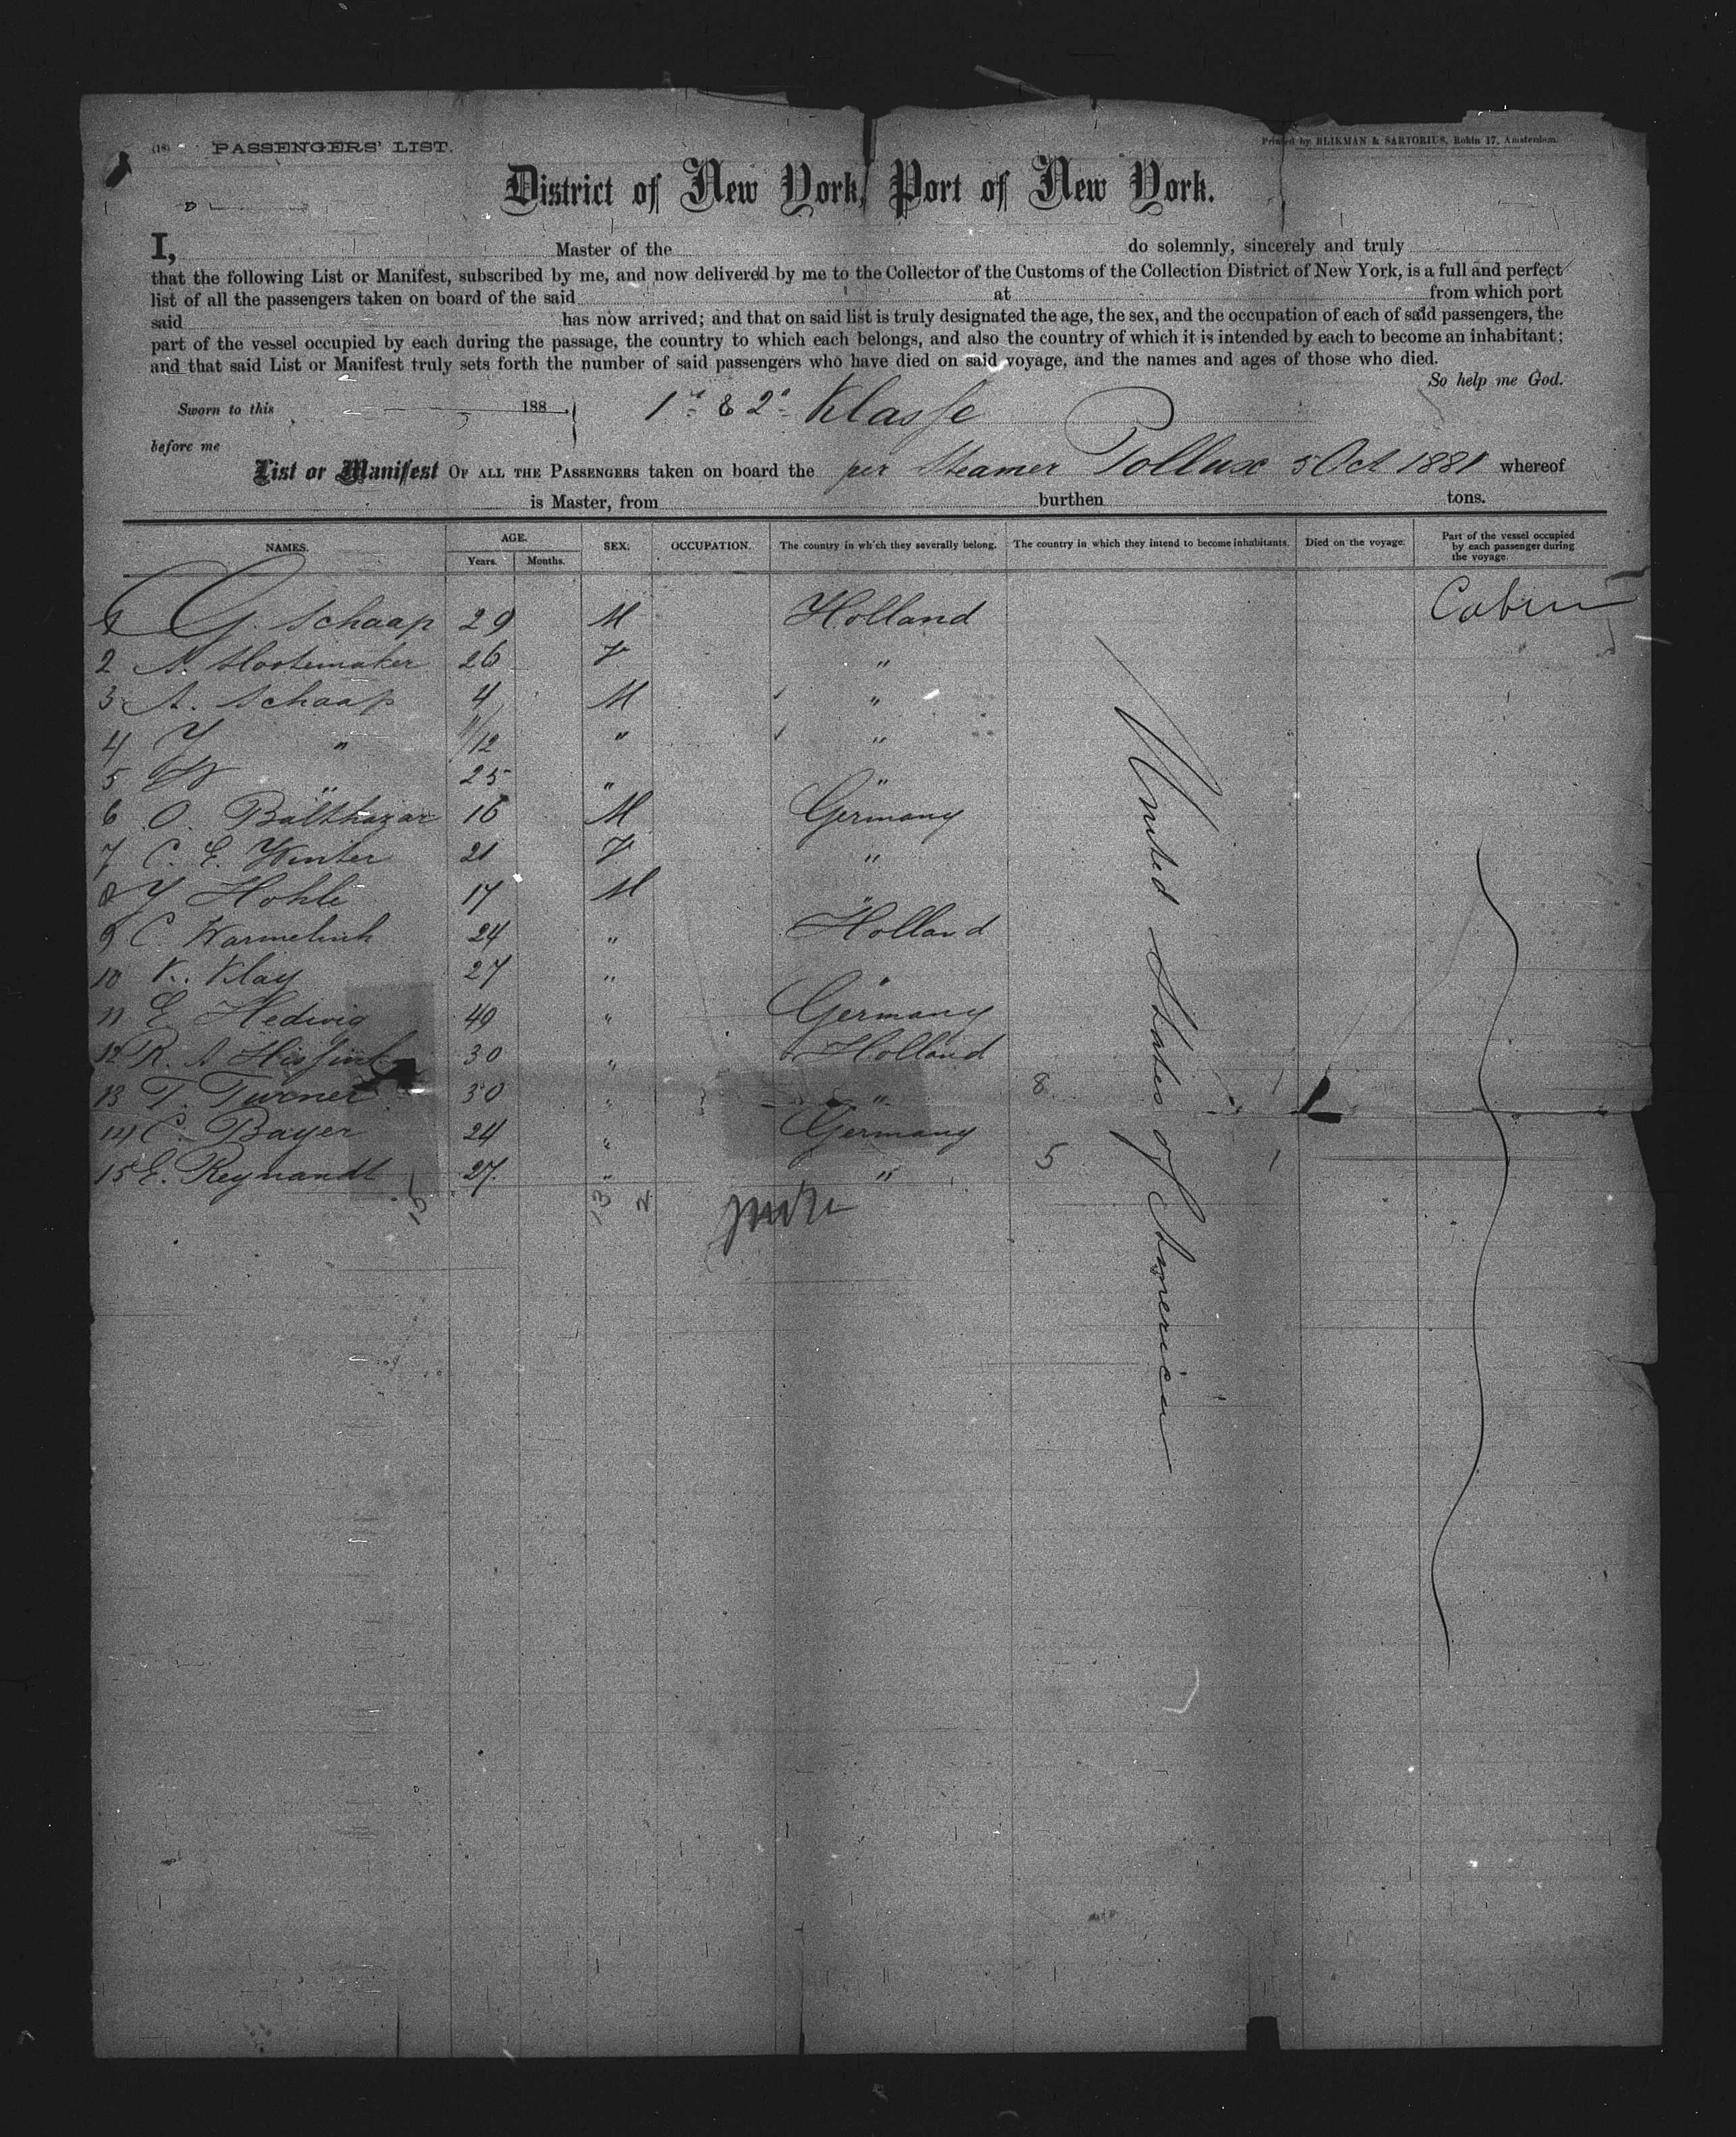 (18) PASSENGERS' LIST.
Printed by BLIKMAN & SARTORIUS, Rokin 17, Amsterdam.
District of New York, Port of New York.
I, Master of the do solemnly, sincerely and truly
that the following List or Manifest, subscribed by me, and now delivered by me to the Collector of the Customs of the Collection District of New York, is a full and perfect
list of all the passengers taken on board of the said at from which port
said has now arrived; and that on said list is truly designated the age, the sex, and the occupation of each of said passengers, the
part of the vessel occupied by each during the passage, the country to which each belongs, and also the country of which it is intended by each to become an inhabitant;
and that said List or Manifest truly sets forth the number of said passengers who have died on said voyage, and the names and ages of those who died.
So help me God.
Sworn to this 188 1e & 2e Klasse
before me
List or Manifest OF ALL THE PASSENGERS taken on board the per Steamer Pollux 5 Oct 1881 whereof
is Master, from burthen tons.
NAMES. AGE. Years. Months. SEX. OCCUPATION. The country in which they severally belong. The country in which they intend to become inhabitants. Died on the voyage. Part of the vessel occupied by each passenger during the voyage.
1 G. Schaap 29 M Holland Cabin
2 A. Slootemaker 26 V "
3 A. Schaap 4 M "
4 Y " 11/12 " "
5 W " 25 " "
6 O. Balthazar 16 M Germany
7 C. E. Winter 21 V "
8 Y Hohle 17 M "
9 C. Warmelink 24 " Holland
10 K. Klay 27 " "
11 E Hedwig 40 " Germany
12 R. A Hissink 30 " Holland
13 T. Turner 30 " " 8 1
14 C. Bayer 24 " Germany
15 E. Reynandt 27 " " 5 1
15 13 2
United States of America